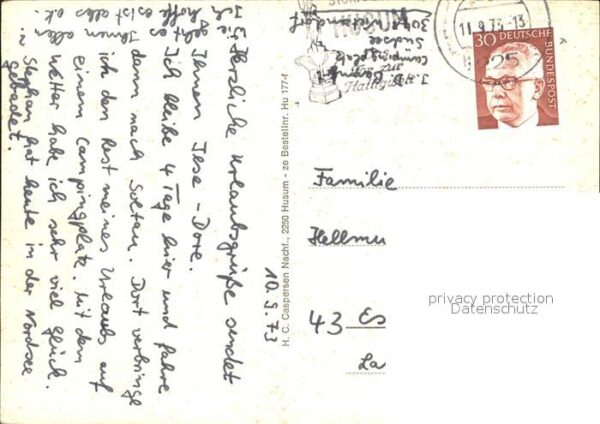 Herzliche Urlaubsgrüße sendet
Ihnen Ilse-Dore.
Ich bleibe 4 Tage hier und fahre
dann nach Soltau. Dort verbringe
ich den Rest meines Urlaubs auf
einem Campingplatz. Mit dem
Wetter habe ich sehr viel Glück.
Stephan hat heute in der Nordsee
gebadet.
hoffe es
Ihnen allen
10.9.73
H. C. Caspersen Nachf., 2250 Husum - ze Bestellnr. Hu 177-f
Campingplatz
Südsee
HUSUM
11.9.73-13
225
30 DEUTSCHE
BUNDESPOST
Familie
Hellmu
43 Es
La
privacy protection
Datenschutz